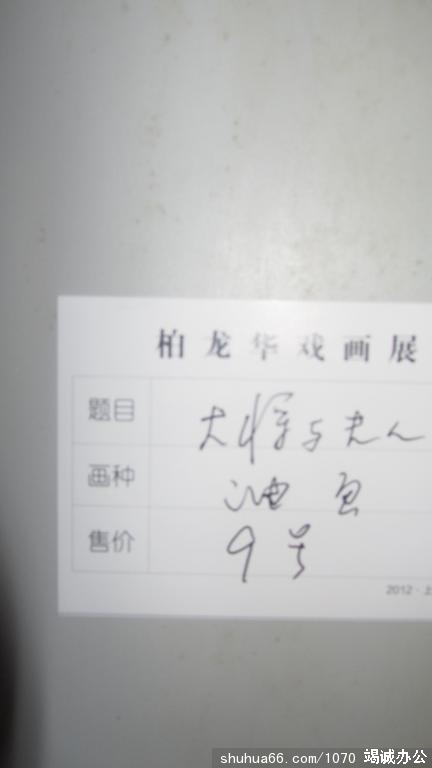 柏龙华戏画展
题目 大将与夫人
画种 油画
售价 9号
2012·上
shuhua66.com/1070 竭诚办公